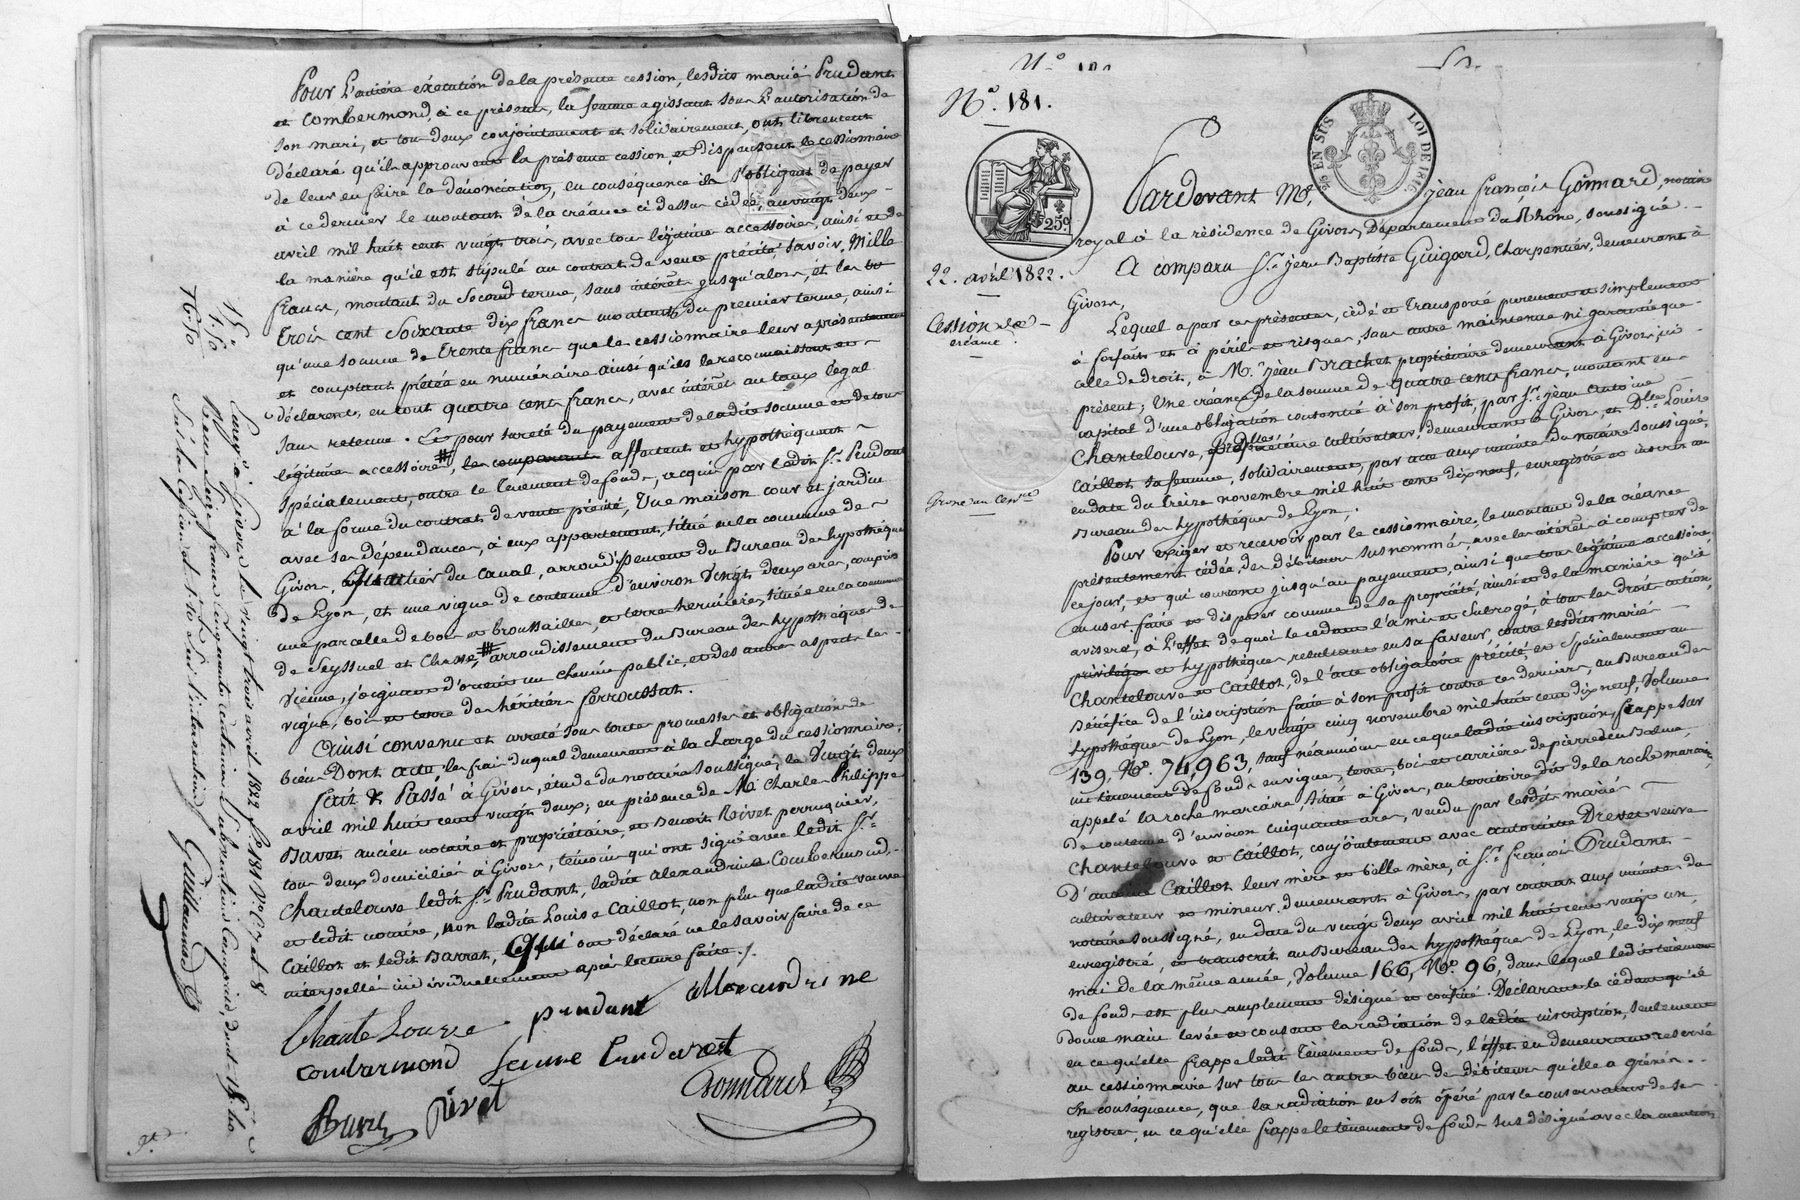 Pour L'entière éxécution de la présente cession, lesdits mariés Prudant
et Combermond, à ce présents, la femme agissant sous L'autorisation de
son mari, et tous deux conjointement et solidairement, ont librement
déclaré qu'ils approuvent la présente cession, et dispensent le cessionnaire
de leur en faire la dénonciation, en conséquence ils s'obligent de payer
à ce dernier le montant de la créance ci dessus cédée, au vingt deux
avril mil huit cent vingt trois, avec tous légitime accessoires, ainsi et de
la manière qu'il est stipulé au contrat de vente précité, savoir, Mille
francs, montant du Second terme, sans intérêt jusqu'alors, et les
trois cent Soixante dix francs montant du premier terme, ainsi
qu'une somme de trente francs que le cessionnaire leur a présentement
et comptant prêtée en numéraire ainsi qu'ils le reconnaissent et
déclarent, en tout quatre cents francs, avec intérêt au taux légal
sans retenue. Et pour sureté du payement de ladite somme et de tous
légitime accessoires, les comparants affectent et hypothéquent
Spécialement, outre le tènement de fonds, acquis par ledit Sr. Prudant
à la forme du contrat de vente précité, Une maison cour et jardin
avec ses dépendances, à eux appartenant, située en la commune de
Givors, quartier du Canal, arrondissement du Bureau des hypothèques
de Lyon, et une vigne de contenue d'environ Vingt deux ares, compris
une parcelle de bois et broussailles, et terre hermière, située en la commune
de Seyssuel et Chasse, arrondissement du Bureau des hypothèques de
Vienne, joignant d'orient un chemin public, et des autres aspects les
vigne, bois et terre des héritiers ferroussat.
Ainsi convenu et arrêté sous toute promesses et obligation de
biens Dont acte les frais duquel demeurent à la charge du cessionnaire,
fait & Passé à Givors, étude du notaire Soussigné, le Vingt deux
avril mil huit cent vingt deux; en présence de Mr. Charles Philippe
Bavet ancien notaire et propriétaire, et Benoit Rivet perruquier,
tous deux domiciliés à Givors, témoins qui ont signé avec ledit Sr.
Chantelouve ledit Sr. Prudant, ladite Alexandrine Combermond,
et ledit notaire, non ladite Louise Caillot, non plus que ladite veuve
Caillot et ledit Barret, qui ont déclaré ne le savoir faire de ce
interpellés individuellement après lecture faite./.
Chante Louve prudant allexandrine
combarmond jeune Prudant
Bavet Rivet Gonnard
15"
1.50
16.50
Enreg.é à Givors le vingt trois avril 1822 f.o 184 V.o C. 7 et 8
Reçu seize francs cinquante centimes
Guillaumot
N.o 181.
Pardevant Me. jean françois Gonnard, notaire
EN SUS LOI DE 1816
25c.
royal à la résidence de Givors, Département du Rhône, soussigné
22. avril 1822.
A comparu Sr. jean Baptiste Guigard, charpentier, demeurant à
Givors,
Cession de
créance.
Lequel a par ces présentes, cédé et transporté purement et simplement
à forfait et à périls et risques, sans autre maintenue ni garantie que
celle de droit, à Mr. jean Brachet propriétaire demeurant à Givors, ici
présent; Une créance de la somme de quatre cents francs, montant en
capital d'une obligation consentie à son profit, par Sr. jean antoine
Chantelouve, propriétaire cultivateur, demeurant à Givors, et Dlle. Louise
Caillot sa femme, solidairement, par acte aux minutes du notaire soussigné,
en date du treize novembre mil huit cent dix neuf, enregistré et inscrit au
Bureau des hypothèques de Lyon.
Pour exiger et recevoir par le cessionnaire, le montant de la créance
présentement cédée, des débiteurs sus nommés, avec les intérêt à compter de
ce jour, et qui courront jusqu'au payement, ainsi que tous légitime accessoires,
en user, faire et disposer comme de sa propriété, ainsi et de la manière qu'il
avisera, à L'effet de quoi le cédant l'a mis et subrogé, à tous les droits actions,
privilége et hypothèques résultans en sa faveur, contre lesdits mariés
Chantelouve et Caillot, de l'acte obligatoire précité et Spécialement au
Bénéfice de l'inscription faite à son profit contre ces derniers, au Bureau des
hypothèques de Lyon, le vingt cinq novembre mil huit cent dix neuf, Volume
139, N.o 74,963, sauf néanmoins en ce que ladite inscription, frappe sur
un tènement de fonds en vigne, terre, bois et carrière de pierre de Balme,
appelé la roche marcaire, situé à Givors, au territoire dit de la roche marcaire,
de contenue d'environ cinquante ares, vendu par lesdits mariés
Chantelouve et Caillot, conjointement avec antoinette Drevet veuve
D'antoine Caillot leur mère et belle mère, à Sr. françois Prudant
cultivateur et mineur demeurant à Givors, par contrat aux minutes du
notaire soussigné, en date du vingt deux avril mil huit cent vingt un,
enregistré, et transcrit au Bureau des hypothèques de Lyon, le dix neuf
mai de la même année, Volume 166, N.o 96, dans lequel ledit tènement
de fonds est plus amplement désigné et confiné. Déclarant le cédant qu'il
donne main levée et consent la radiation de ladite inscription, seulement
en ce qu'elle frappe ledit tènement de fonds, l'effet en demeurant réservé
au cessionnaire sur tous les autres biens des débiteurs qu'elle a grevés.
En conséquence, que la radiation en soit opérée par le conservateur de ses
registres, en ce qu'elle frappe le tènement de fonds sus désigné avec la mention